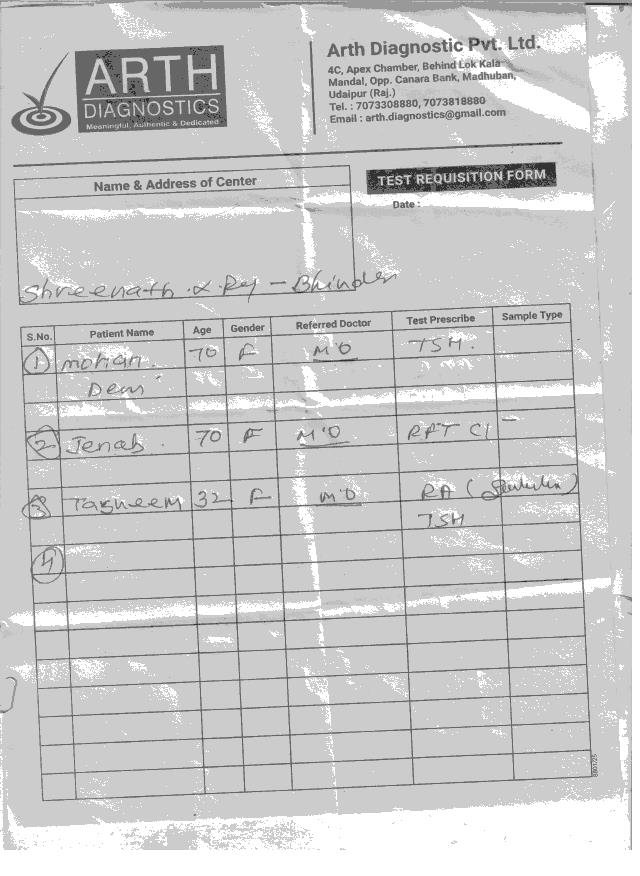 ARTH
DIAGNOSTICS
Meaningful, Authentic & Dedicated
Arth Diagnostic Pvt. Ltd.
4C, Apex Chamber, Behind Lok Kala
Mandal, Opp. Canara Bank, Madhuban,
Udaipur (Raj.)
Tel. : 7073308880, 7073818880
Email : arth.diagnostics@gmail.com
Name & Address of Center
TEST REQUISITION FORM
Date :
Shreenath X Ray - Bhinder
S.No. Patient Name Age Gender Referred Doctor Test Prescribe Sample Type
1 Mohan 70 F M'O TSH.
Devi
2 Jenab. 70 F M'O RFT CI -
3 Tasneem 32 F M'O RA (
TSH
4